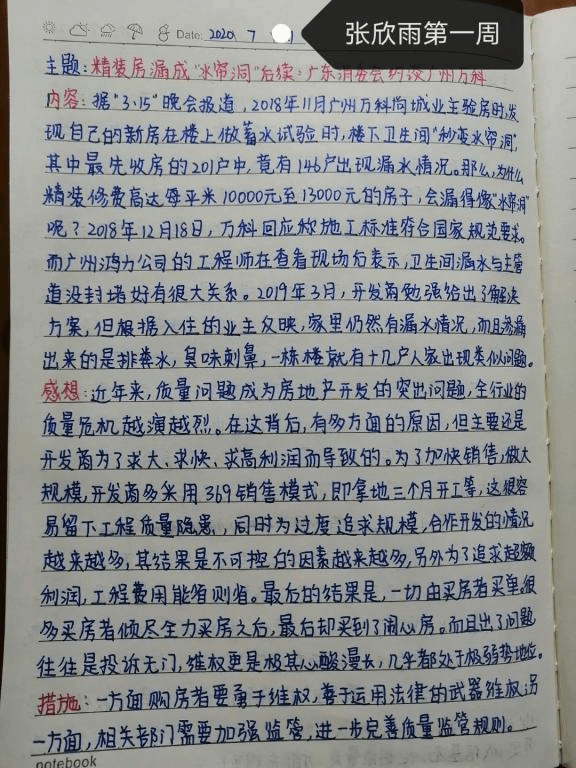 张欣雨第一周
Date: 2020 7
主题:精装房漏成"水帘洞"后续:广东消委会约谈广州万科
内容:据"3·15"晚会报道,2018年11月广州万科尚城业主验房时,发
现自己的新房在楼上做蓄水试验时,楼下卫生间"秒变水帘洞",
其中最先收房的201户中,竟有146户出现漏水情况。那么,为什么
精装修费高达每平米10000元至13000元的房子,会漏得像"水帘洞"
呢?2018年12月18日,万科回应称施工标准符合国家规范要求。
而广州鸿力公司的工程师在查看现场后表示,卫生间漏水与主管
道没封堵好有很大关系。2019年3月,开发商勉强给出了解决
方案,但根据入住的业主反映,家里仍然有漏水情况,而且渗漏
出来的是排粪水,臭味刺鼻,一栋楼就有十几户人家出现类似问题。
感想:近年来,质量问题成为房地产开发的突出问题,全行业的
质量危机越演越烈。在这背后,有多方面的原因,但主要还是
开发商为了求大、求快、求高利润而导致的。为了加快销售,做大
规模,开发商多采用369销售模式,即拿地三个月开工等,这很容
易留下工程质量隐患,同时为过度追求规模,合作开发的情况
越来越多,其结果是不可控的因素越来越多,另外为了追求超额
利润,工程费用能省则省。最后的结果是,一切由买房者买单。很
多买房者倾尽全力买房之后,最后却买到了闹心房。而且出了问题
往往是投诉无门,维权更是极其心酸漫长,几乎都处于极弱势地位。
措施:一方面购房者要勇于维权,善于运用法律的武器维权,另
一方面,相关部门需要加强监管,进一步完善质量监管规则。
notebook